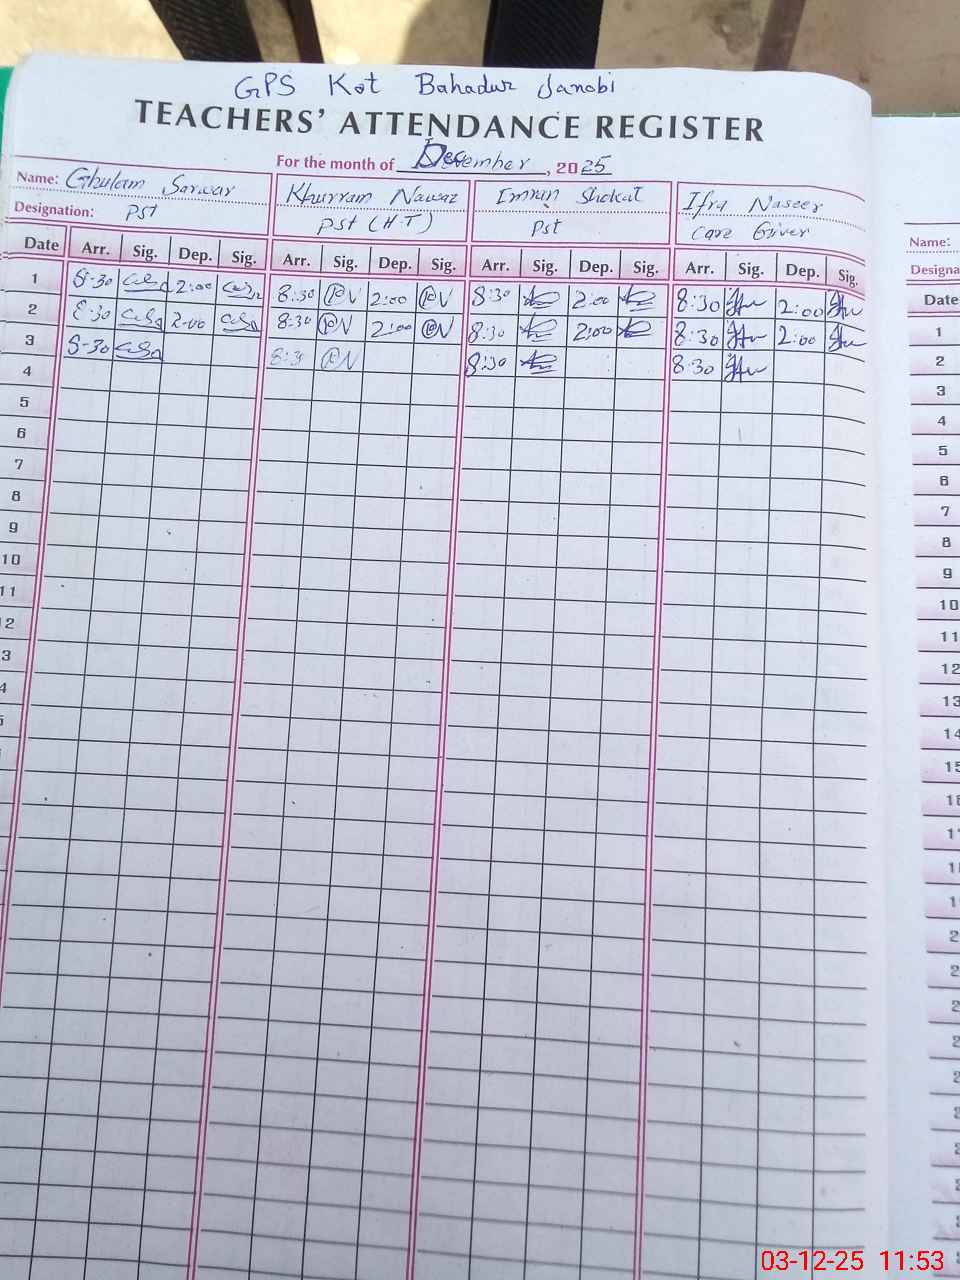 GPS Kot Bahadur Janobi
TEACHERS' ATTENDANCE REGISTER
For the month of December, 2025
Name: Ghulam Sarwar Khurram Nawaz Imran Shokat Ifra Naseer
Designation: PST PST (H.T) PST Care Giver
Date Arr. Sig. Dep. Sig. Arr. Sig. Dep. Sig. Arr. Sig. Dep. Sig. Arr. Sig. Dep. Sig.
1 8-30 2:00 8:30 RN 2:00 RN 8:30 2:00 8:30 2:00
2 8-30 2-00 8:30 RN 2:00 RN 8:30 2:00 8:30 2:00
3 8-30 8:30 RN 8:30 8:30
4
5
6
7
8
9
10
11
2
3
4
5
Name:
Designa
Date
1
2
3
4
5
6
7
8
9
10
11
12
13
14
15
03-12-25 11:53